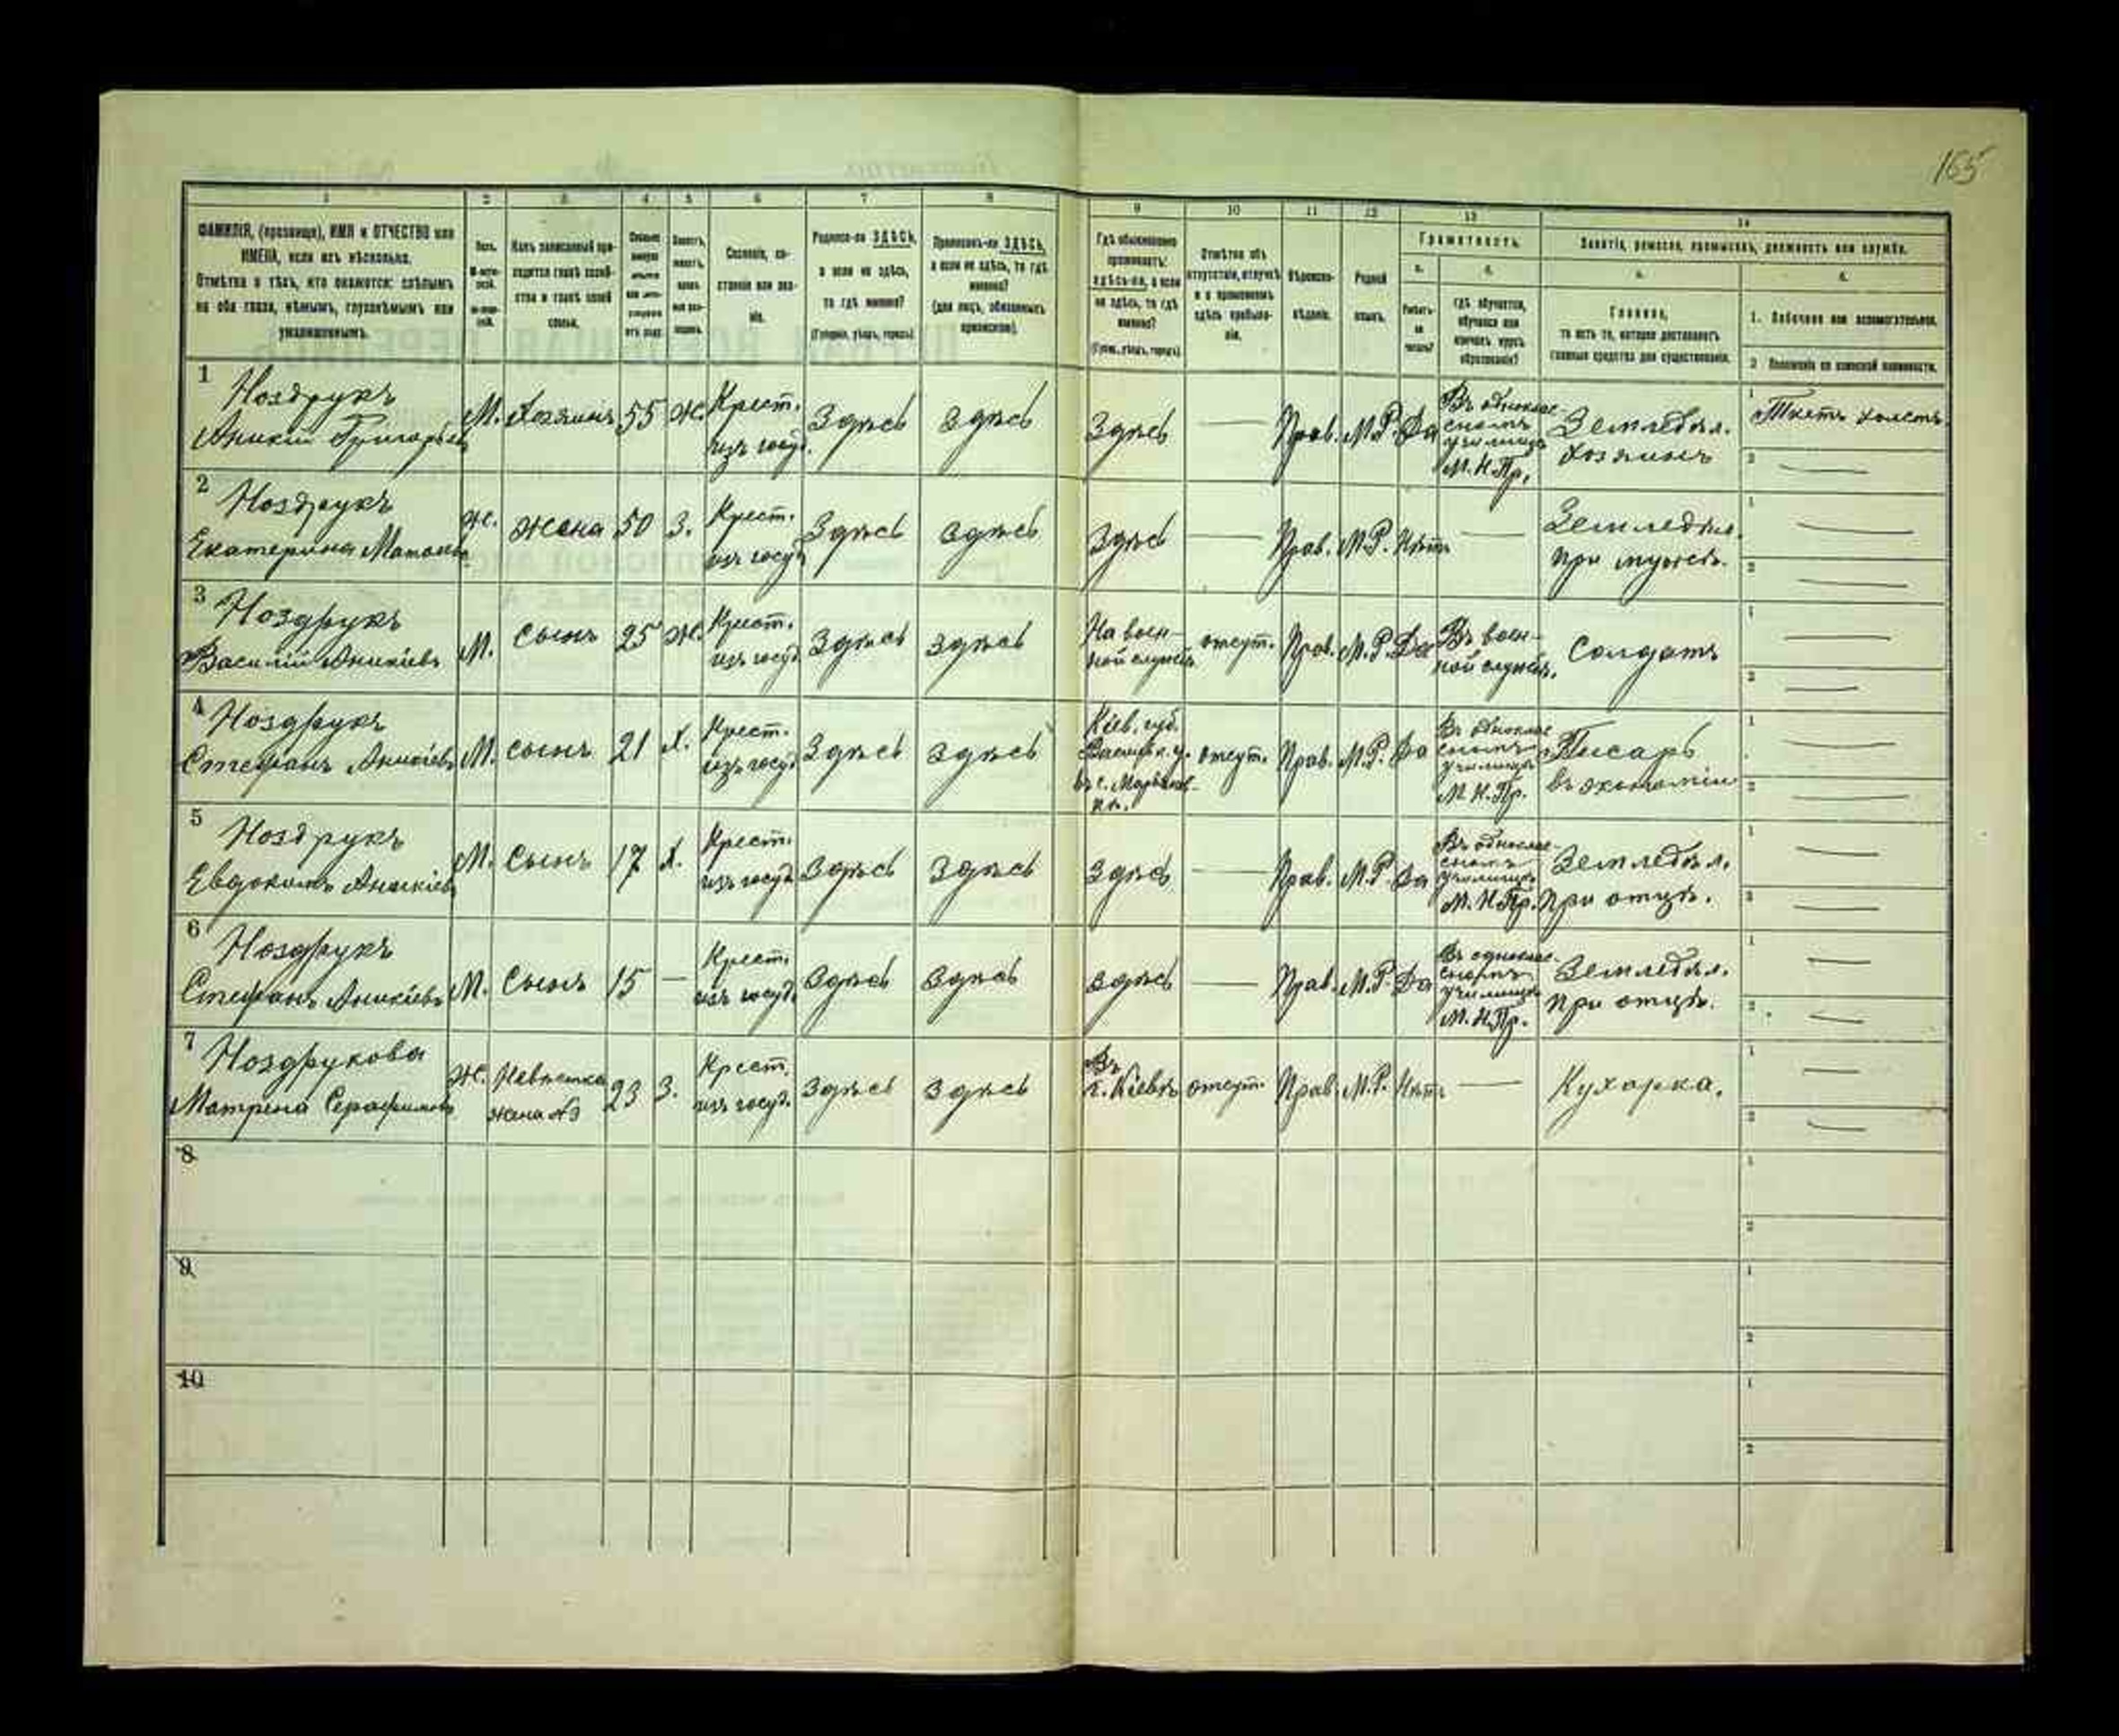 165
1 2 3 4 5 6 7 8 9 10 11 12 13 14
ФАМИЛІЯ, (прозвище), ИМЯ и ОТЧЕСТВО или
ИМЕНА, если ихъ нѣсколько.
Отмѣтка о тѣхъ, кто окажется: слѣпымъ
на оба глаза, нѣмымъ, глухонѣмымъ или
умалишеннымъ.
Полъ.
Какъ записанный при-
ходится главѣ хозяй-
ства и главѣ своей
семьи.
Сословіе, со-
стояніе или зва-
ніе.
Родился-ли ЗДѢСЬ,
а если не здѣсь,
то гдѣ именно?
(Губернія, уѣздъ, городъ)
Приписанъ-ли ЗДѢСЬ,
а если не здѣсь, то гдѣ
именно?
(для лицъ, обязанныхъ
припискою).
Гдѣ обыкновенно
проживаетъ:
здѣсь-ли, а если
не здѣсь, то гдѣ
именно?
(Губ., уѣздъ, городъ)
Отмѣтка объ
отсутствіи, отлучкѣ
и о временномъ
здѣсь пребыва-
ніи.
Вѣроиспо-
вѣданіе.
Родной
языкъ.
Грамотность.
а.
б.
Умѣетъ-
ли
читать?
гдѣ обучается,
обучался или
кончилъ курсъ
образованія?
Занятіе, ремесло, промыселъ, должность или служба.
а.
б.
Главное,
то есть то, которое доставляетъ
главныя средства для существованія.
1. Побочное или вспомогательное.
2 Положеніе по воинской повинности.
1 Ноздрукъ
Аникій Григорьевъ
М. Хозяинъ 55 Ж. Крест.
изъ госуд. Здѣсь Здѣсь Здѣсь — Прав. М.Р. Да
Въ однокла-
сномъ
училищѣ
М.Н.Пр.
Земледѣл.
Хозяинъ
1 Ткетъ холстъ
2 —
2 Ноздрукъ
Екатерина
Ж. Жена 50 З. Крест.
изъ госуд. Здѣсь Здѣсь Здѣсь — Прав. М.Р. Нѣтъ —
Земледѣл.
при мужѣ.
1 —
2 —
3 Ноздрукъ
Василій Аникіевъ
М. Сынъ 25 Ж. Крест.
изъ госуд. Здѣсь Здѣсь
На воен-
ной службѣ
отсут. Прав. М.Р. Да
Въ воен-
ной службѣ.
Солдатъ
1 —
2 —
4 Ноздрукъ
Стефанъ Аникіевъ
М. Сынъ 21 Х. Крест.
изъ госуд. Здѣсь Здѣсь
Кіев. губ.
отсут. Прав. М.Р. Да
Въ однокла-
сномъ
училищѣ
М.Н.Пр.
Писарь
въ экономіи
1 —
2 —
5 Ноздрукъ
Евдокимъ Аникіевъ
М. Сынъ 17 Х. Крест.
изъ госуд. Здѣсь Здѣсь Здѣсь — Прав. М.Р. Да
Въ однокла-
сномъ
училищѣ
М.Н.Пр.
Земледѣл.
При отцѣ.
1 —
2 —
6 Ноздрукъ
Стефанъ Аникіевъ
М. Сынъ 15 — Крест.
изъ госуд. Здѣсь Здѣсь Здѣсь — Прав. М.Р. Да
Въ однокла-
сномъ
училищѣ
М.Н.Пр.
Земледѣл.
при отцѣ.
1 —
2 —
7 Ноздрукова
Матрена Серафимова
Ж. Невѣстка
жена №3
23 З. Крест.
изъ госуд. Здѣсь Здѣсь
Въ
г. Кіевѣ
отсут. Прав. М.Р. Нѣтъ —
Кухарка.
1 —
2 —
8
1
2
9
1
2
10
1
2